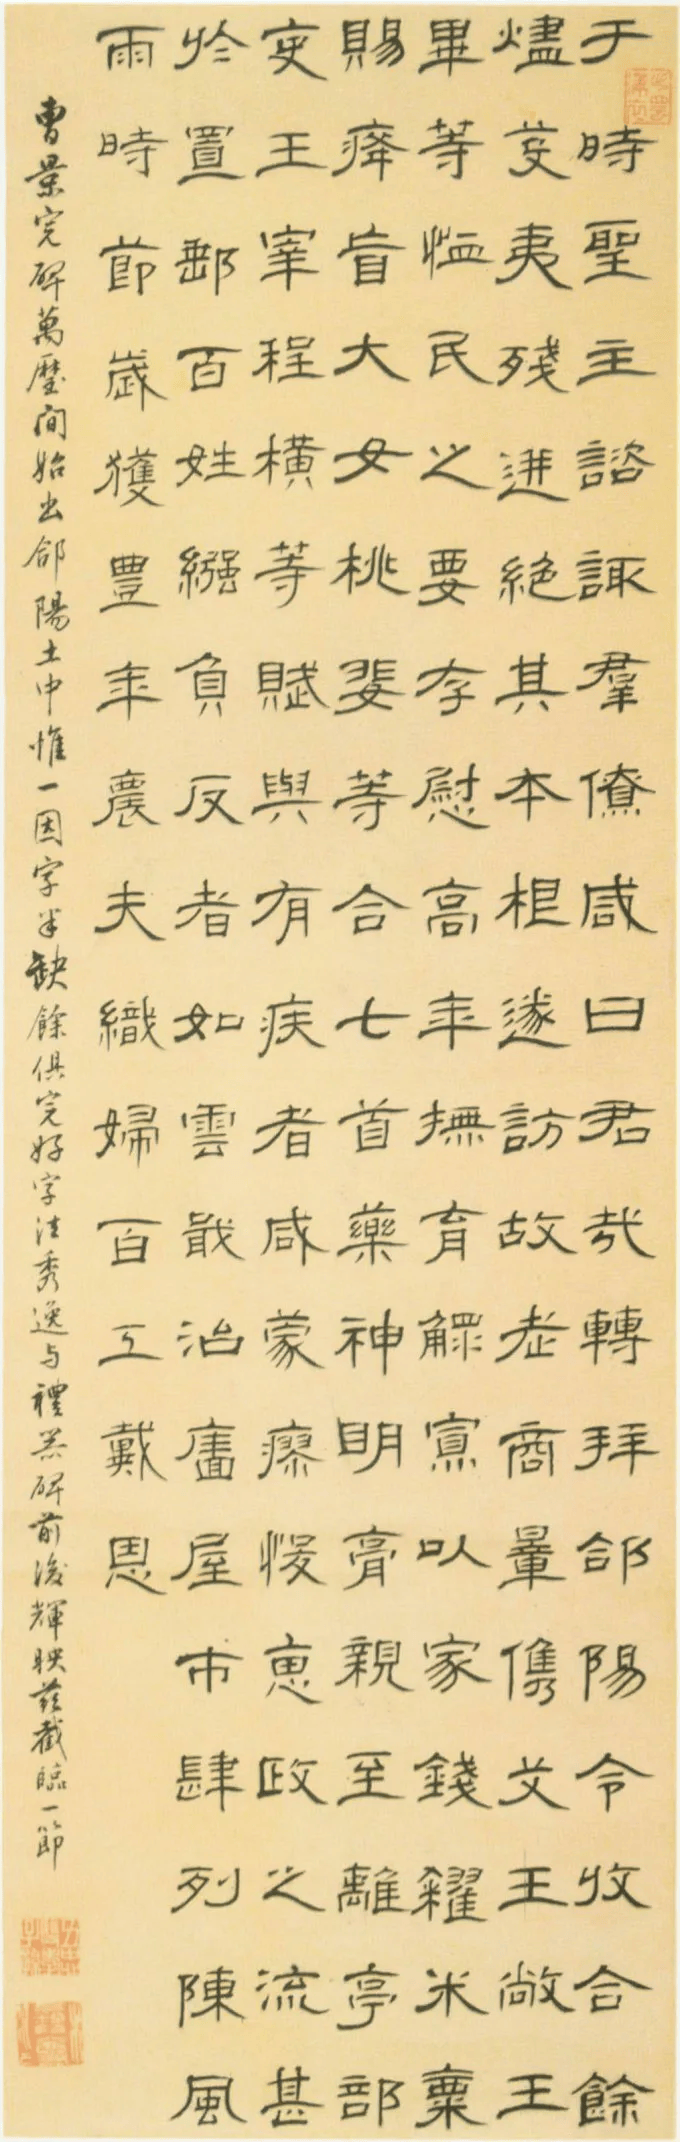 于時聖主諮諏羣僚咸曰君哉轉拜郃陽令收合餘
燼芟夷殘迸絕其本根遂訪故老商暈儁艾王敞王
畢等恤民之要存慰高年撫育鰥寡以家錢糴米粟
賜癃盲大女桃婓等合七首藥神明膏親至離亭部
吏王宰程橫等賦與有疾者咸蒙瘳悛惠政之流甚
於置郵百姓繦負反者如雲戢治廧屋市肆列陳風
雨時節歲獲豐年農夫織婦百工戴恩
曹景完碑萬歷间始出郃陽土中惟一因字半缺餘俱完好字法秀逸与禮器碑前後輝映茲截臨一節